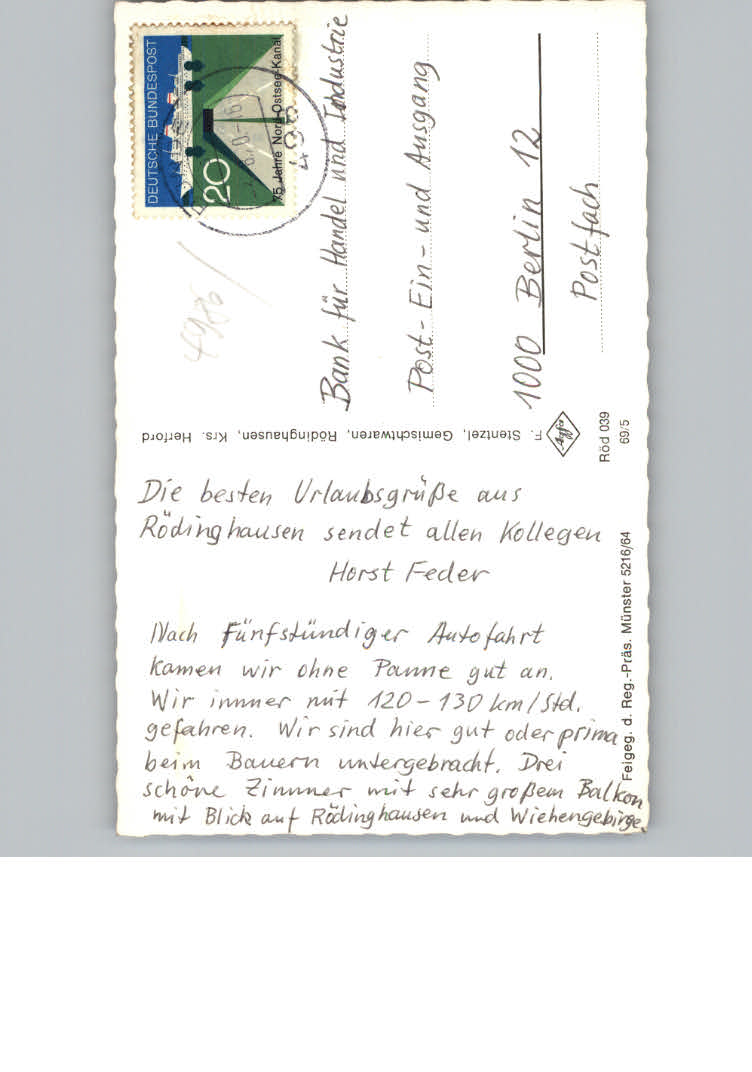 DEUTSCHE BUNDESPOST
20
75 Jahre Nord-Ostsee-Kanal
498
4986/
Bank für Handel und Industrie
Post- Ein- und Ausgang
1000 Berlin 12
Postfach
F. Stentzel, Gemischtwaren, Rödinghausen, Krs. Herford
Agfa
Röd 039
69/5
Die besten Urlaubsgrüße aus
Rödinghausen sendet allen Kollegen
Horst Feder
Nach Fünfstündiger Autofahrt
kamen wir ohne Panne gut an.
Wir immer mit 120-130 km/Std.
gefahren. Wir sind hier gut oder prima
beim Bauern untergebracht. Drei
schöne Zimmer mit sehr großem Balkon
mit Blick auf Rödinghausen und Wiehengebirge.
Feigeg. d. Reg.-Präs. Münster 5216/64